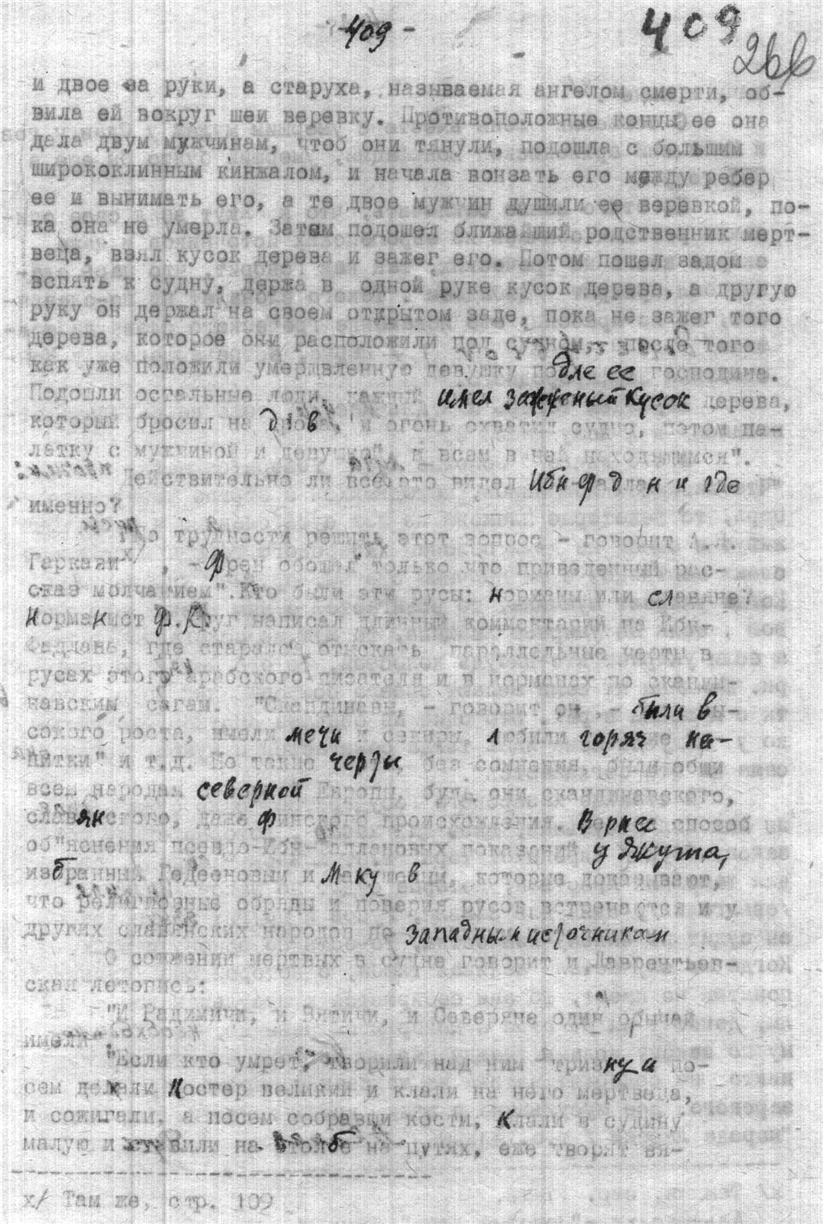 409 -
409
266
и двое за руки, а старуха, называемая ангелом смерти, об-
вила ей вокруг шеи веревку. Противоположные концы ее она
дала двум мужчинам, чтоб они тянули, подошла с большим
ширококлинным кинжалом, и начала вонзать его между ребер
ее и вынимать его, а те двое мужчин душили ее веревкой, по-
ка она не умерла. Затем подошел ближайший родственник мерт-
веца, взял кусок дерева и зажег его. Потом пошел задом
вспять к судну, держа в одной руке кусок дерева, а другую
руку он держал на своем открытом заде, пока не зажег того
дерева, которое они расположили под судном, после того
как уже положили умерщвленную девушку подле ее господина.
Подошли остальные люди, каждый имел зажженный кусок дерева,
который бросил на дрова, и огонь охватил судно, потом па-
латку с мужчиной и девушкой и всем в ней находящимся".
Действительно ли все это видел Ибн и где
именно?
"По трудности решить этот вопрос - говорит А.Я.
Гаркави х, - Френ обошел только что приведенный рас-
сказ молчанием". Кто были эти русы: норманы или славяне?
Норманист Ф.Круг написал длинный комментарий на Ибн-
Фадлана, где старался отыскать параллельные черты в
русах этого арабского писателя и в норманах по сканди-
навским сагам. "Скандинавы, - говорит он, - были вы-
сокого роста, имели мечи и секиры, любили горяч на-
питки" и т.д. Но такие черты, без сомнения, были общи
всем народам северной Европы, будь они скандинавского,
славянского, даже финского происхождения. способ
об"яснения псевдо-Ибн- показаний у Якута,
избранный Гедеоновым и Макушевым, которые доказывают,
что религиозные обряды и поверия русов встречаются и у
других славянских народов по западным источникам
О сожжении мертвых в судне говорит и Лаврентьев-
ская летопись:
"И Радимичи, и Вятичи, и Северяне один обычай
имели".
"Если кто умрет, творили над ним тризну и по-
сем делали костер великий и клали на него мертвеца,
и сожигали, а посем собравши кости, клали в судину
малую и ставили на столбе на путях, еже творят вя-
х/ Там же, стр. 109